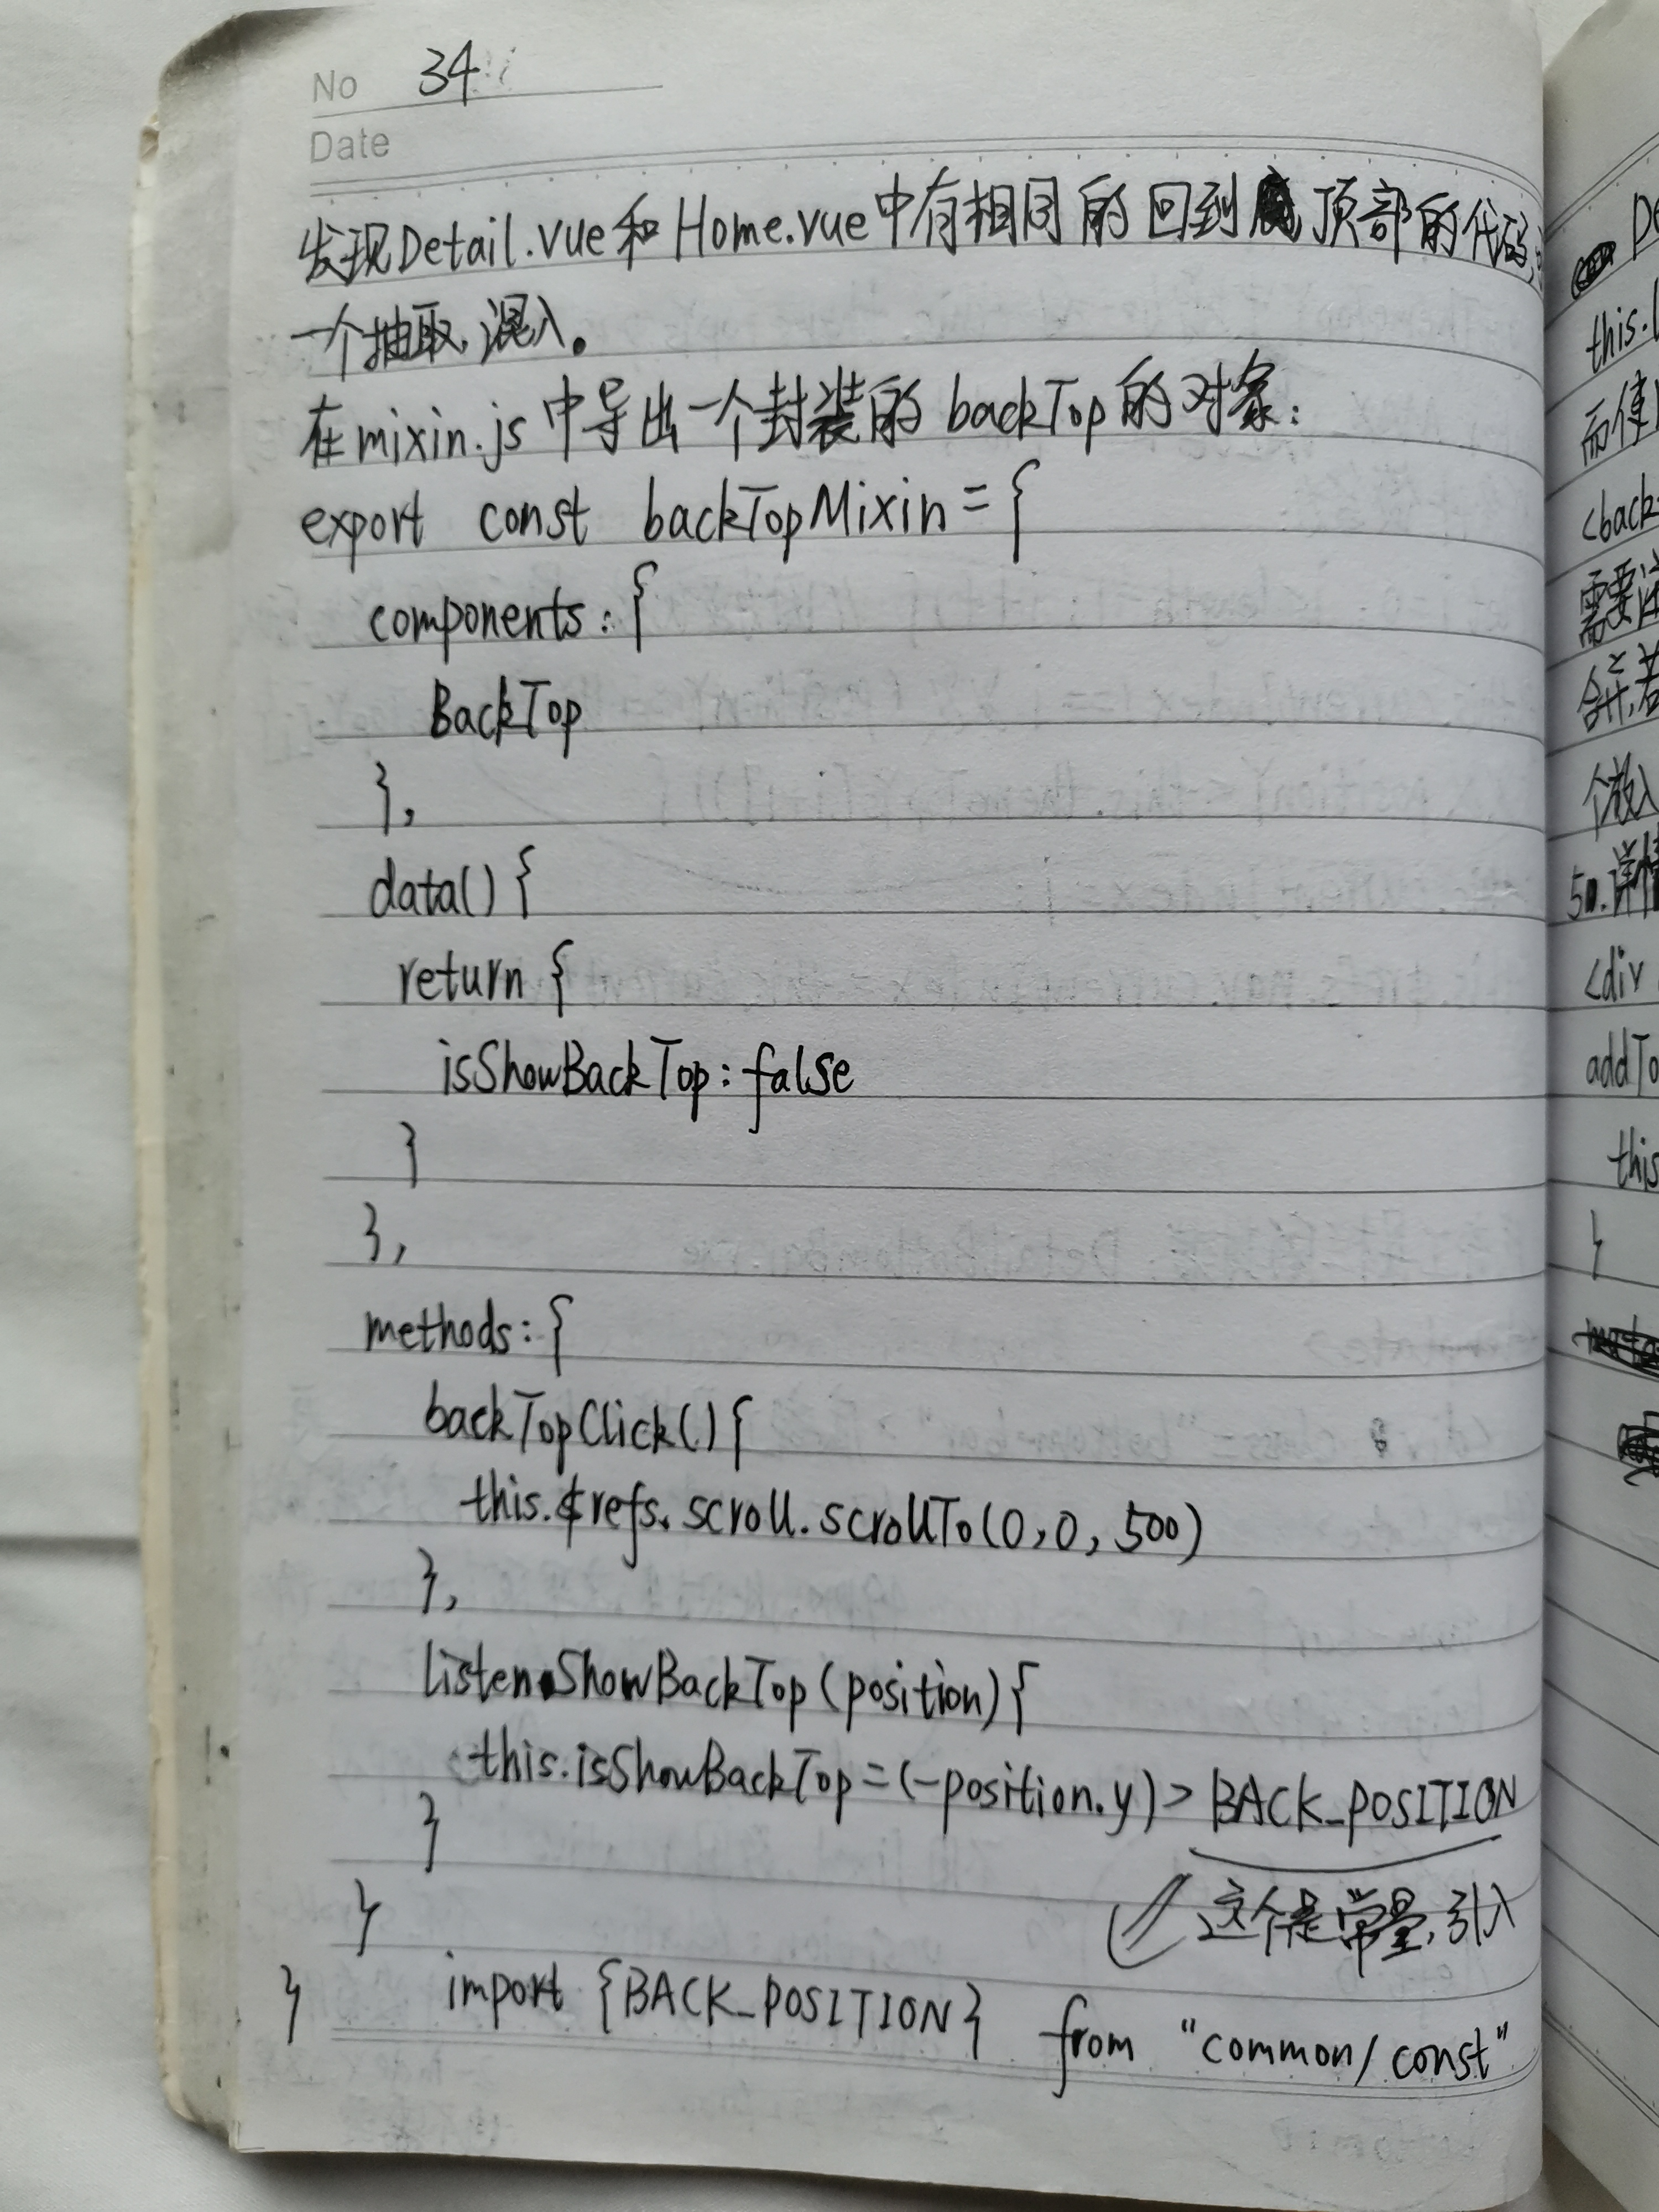 No 34
Date
发现Detail.vue和Home.vue中有相同的回到顶部的代码,
一个抽取,混入。
在mixin.js中导出一个封装的backTop的对象:
export const backTopMixin = {
components: {
BackTop
},
data() {
return {
isShowBackTop: false
}
},
methods: {
backTopClick() {
this.$refs.scroll.scrollTo(0,0,500)
},
listenShowBackTop(position) {
this.isShowBackTop = (-position.y) > BACK_POSITION
}
这个是常量,引入
}
} import {BACK_POSITION} from "common/const"
this.
而使
<back
需要
合并,若
个放入
50.详情
<div
addTo
this
}